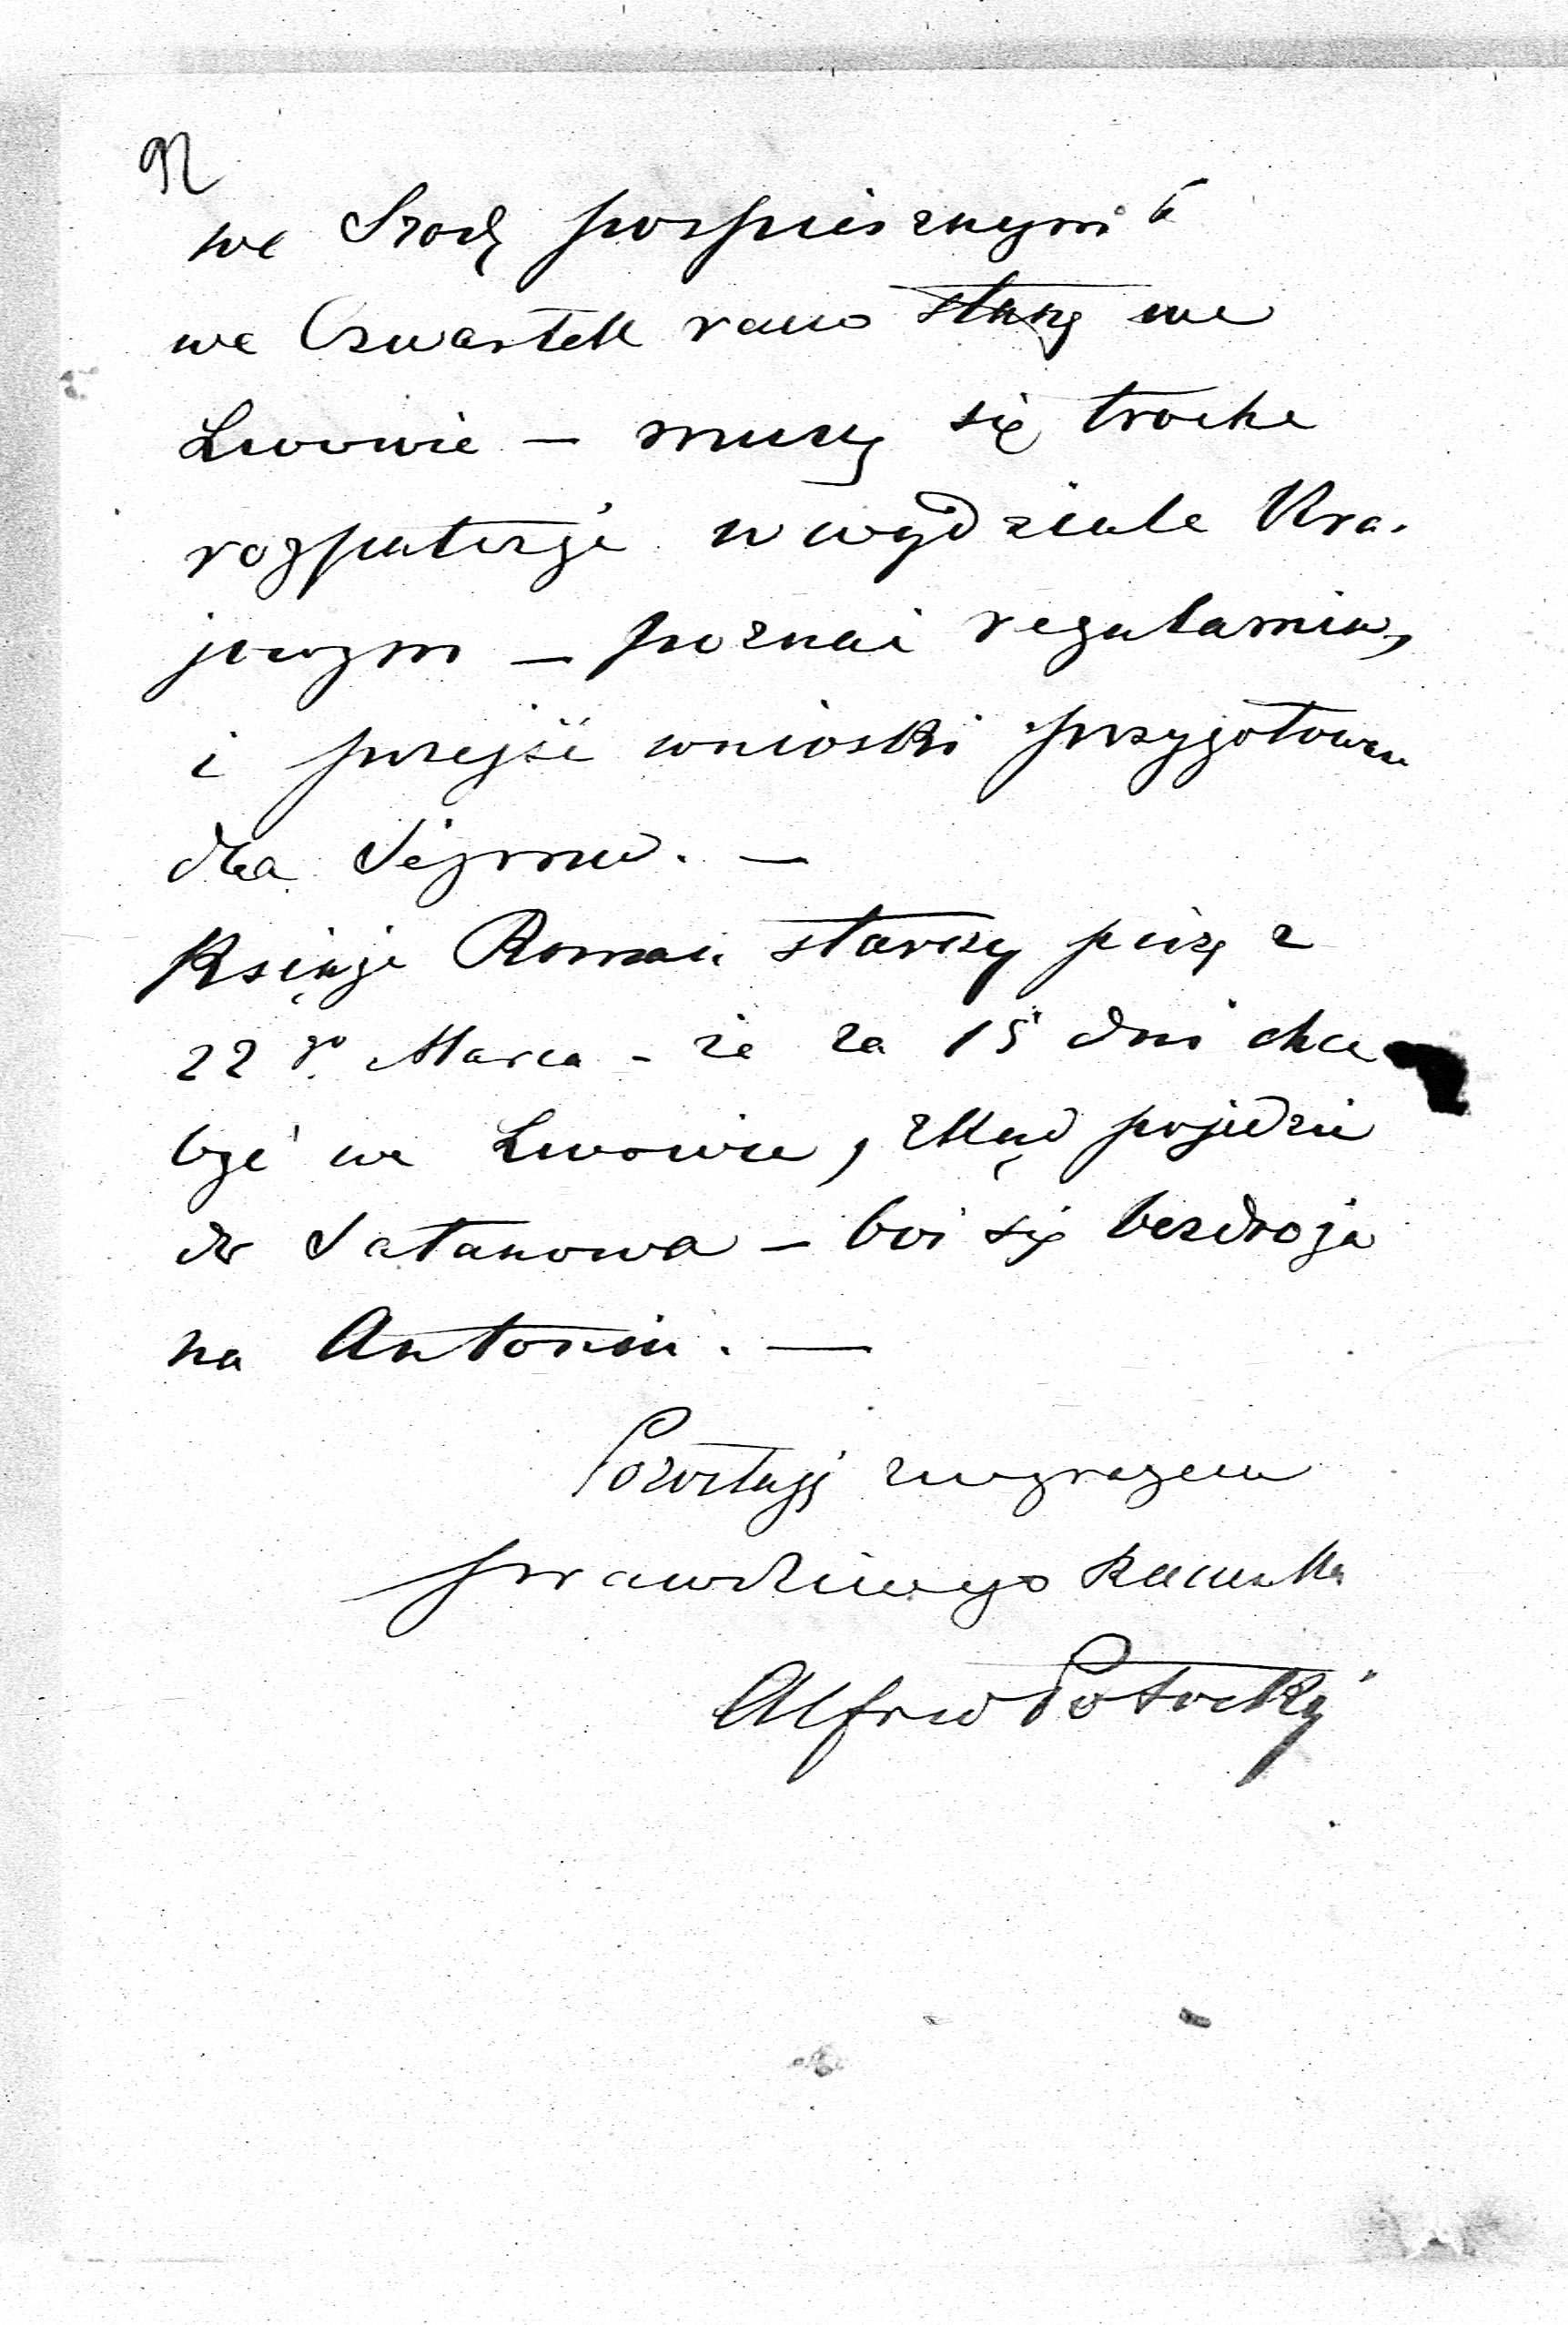 92
we Środę pospiesznym i
we Czwartek rano stanę we
Lwowie — muszę się troche
rozpatrzyć w wydziale Kra-
jowym — poznać regulamin,
i przejść wnioski przygotowane
dla Sejmu. —
Książe Roman starszy piszę z
22go Marca - że za 15 dni chce
być we Lwowie, zkąd pojedzie
do Satanowa — boi się bezdroża
na Antonin. —
Pozostaję z wyrazem
prawdziwego szacunku
Alfred Potocki